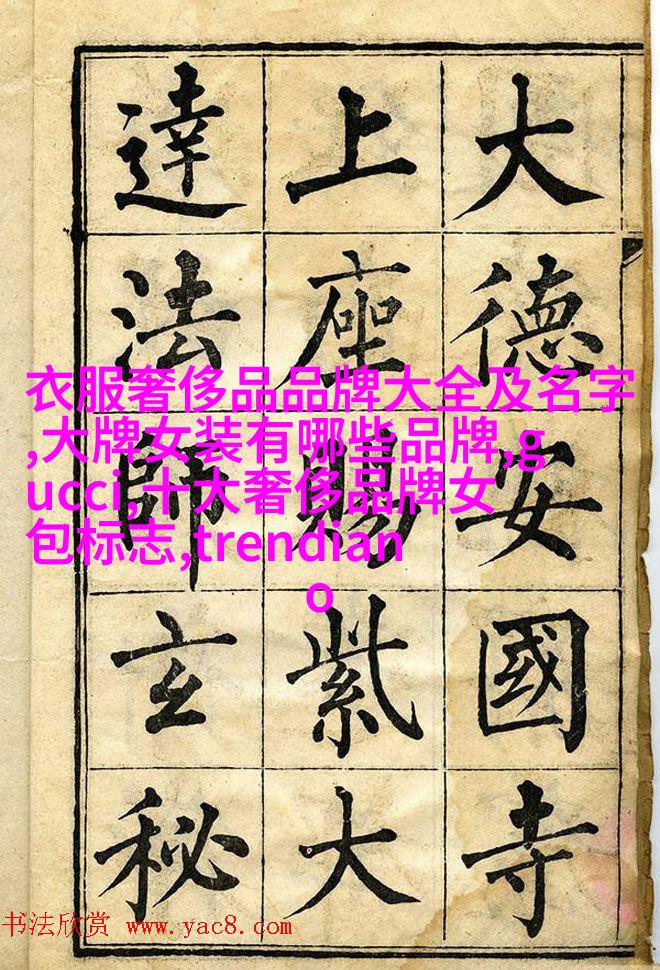 大德安國寺
上座賜紫大
達法師玄秘
衣服奢侈品品牌大全及名字
,大牌女装有哪些品牌,g
ucci,十大奢侈品牌女
包标志,trendian
o
书法欣赏 www.yac8.com